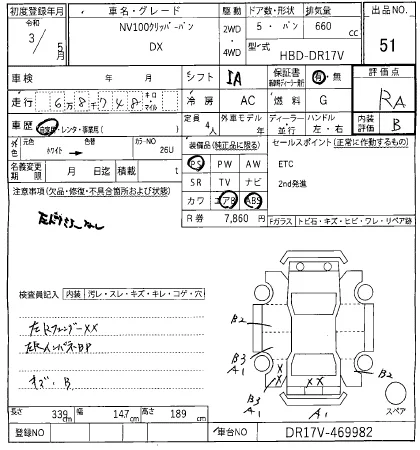 初度登録年月 車名・グレード 駆動 ドア数・形状 排気量 出品NO.
令和 3/5月 NV100クリッパーバン DX 2WD・4WD 5・バン 660cc 51
型式 HBD-DR17V
車検 年 月 シフト IA 保証書 有・無 評価点 RA
走行 6万8千748 キロ・マイル 冷房 AC 燃料 G
車歴 自家用・レンタ・事業用( ) 定員 4人 外車モデル 年 ディーラー・並行 ハンドル 左・右 内装評価 B
外色 元色 ホワイト → 色替 カラーNO 26U 装備品(純正品に限る) セールスポイント(正常に作動するもの)
名義変更期限 月 日迄 積載 t PS PW AW ETC
注意事項(欠品・修復・不具合箇所および状態) SR TV ナビ 2nd発進
カワ エアB ABS
R券 7,860円 Fガラス トビ石・キズ・ヒビ・ワレ・リペア跡
検査員記入 内装 汚レ・スレ・キズ・キレ・コゲ・穴
B2
B3 A1
B2
B3 A1
A1
スペア
長さ 339cm 幅 147cm 高さ 189cm
登録NO 車台NO DR17V-469982